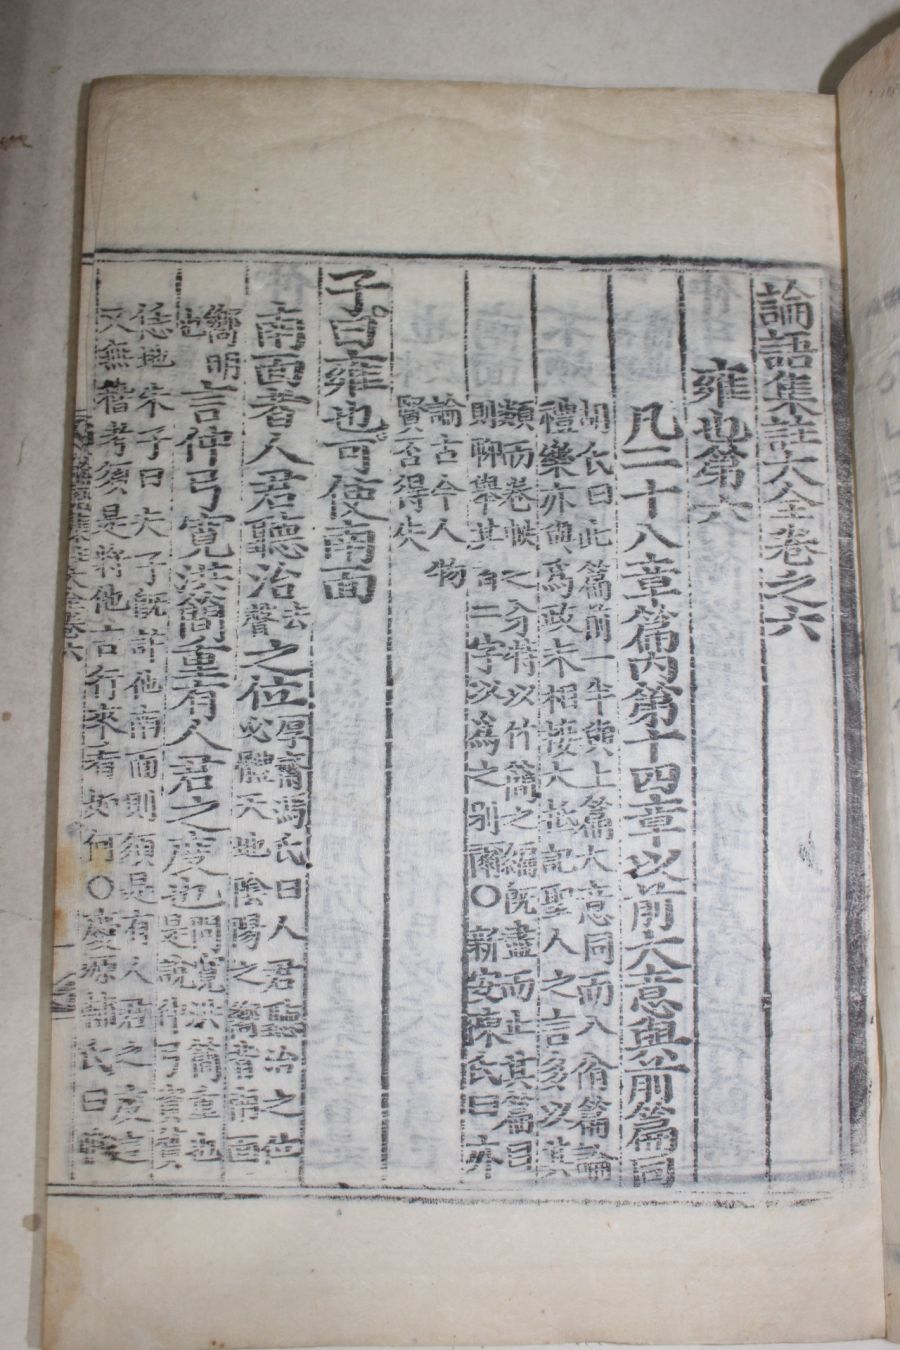 論語集註大全卷之六
雍也第六
凡二十八章篇內第十四章以前大意與前篇同
胡氏曰此篇前一半與上篇大意同而八佾篇論
禮樂亦與爲政末相接大抵記聖人之言多以其
類而卷帙之分特以竹簡之編旣盡而止其篇目
則聊舉其首二字以爲之別爾○新安陳氏曰亦
論古今人物
賢否得失
子曰雍也可使南面
南面者人君聽治去聲之位厚齋馮氏曰人君臨治之位
必體天地陰陽之嚮背南面
嚮明
也言仲弓寬洪簡重有人君之度也問寬洪簡重也
是說仲弓資質
恁地朱子曰夫子旣許他南面則須是有人君之度這
又無稽考須是將他言行來看如何○慶源輔氏曰